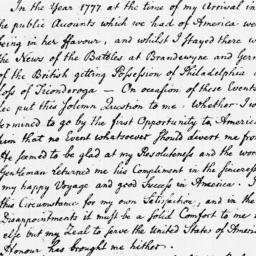 In the Year 1777 at the time of my Arrival in
the public Accounts which we had of America we
being in her ffavour, and whilst I stayed there w
the News of the Battles at Brandewyne and Ger
of the British getting Possession of Philadelphia
Loss of Ticonderoga — On occasion of these Event
put this Solemn Question to me. Whether I wo
ermined to go by the first Opportunity to America
him that no Event whatsoever Should divert me from
He seemed to be glad at my Resoluteness and the wor
Gentleman returned me his Compliment in the sinceres
my happy Voyage and good Success in America. I
this Circumstance for my own Satisfaction, and in the
Disappointments it must be a Solid Comfort to me
else but my Zeal to serve the United States of Ameri
Honour has brought me hither.